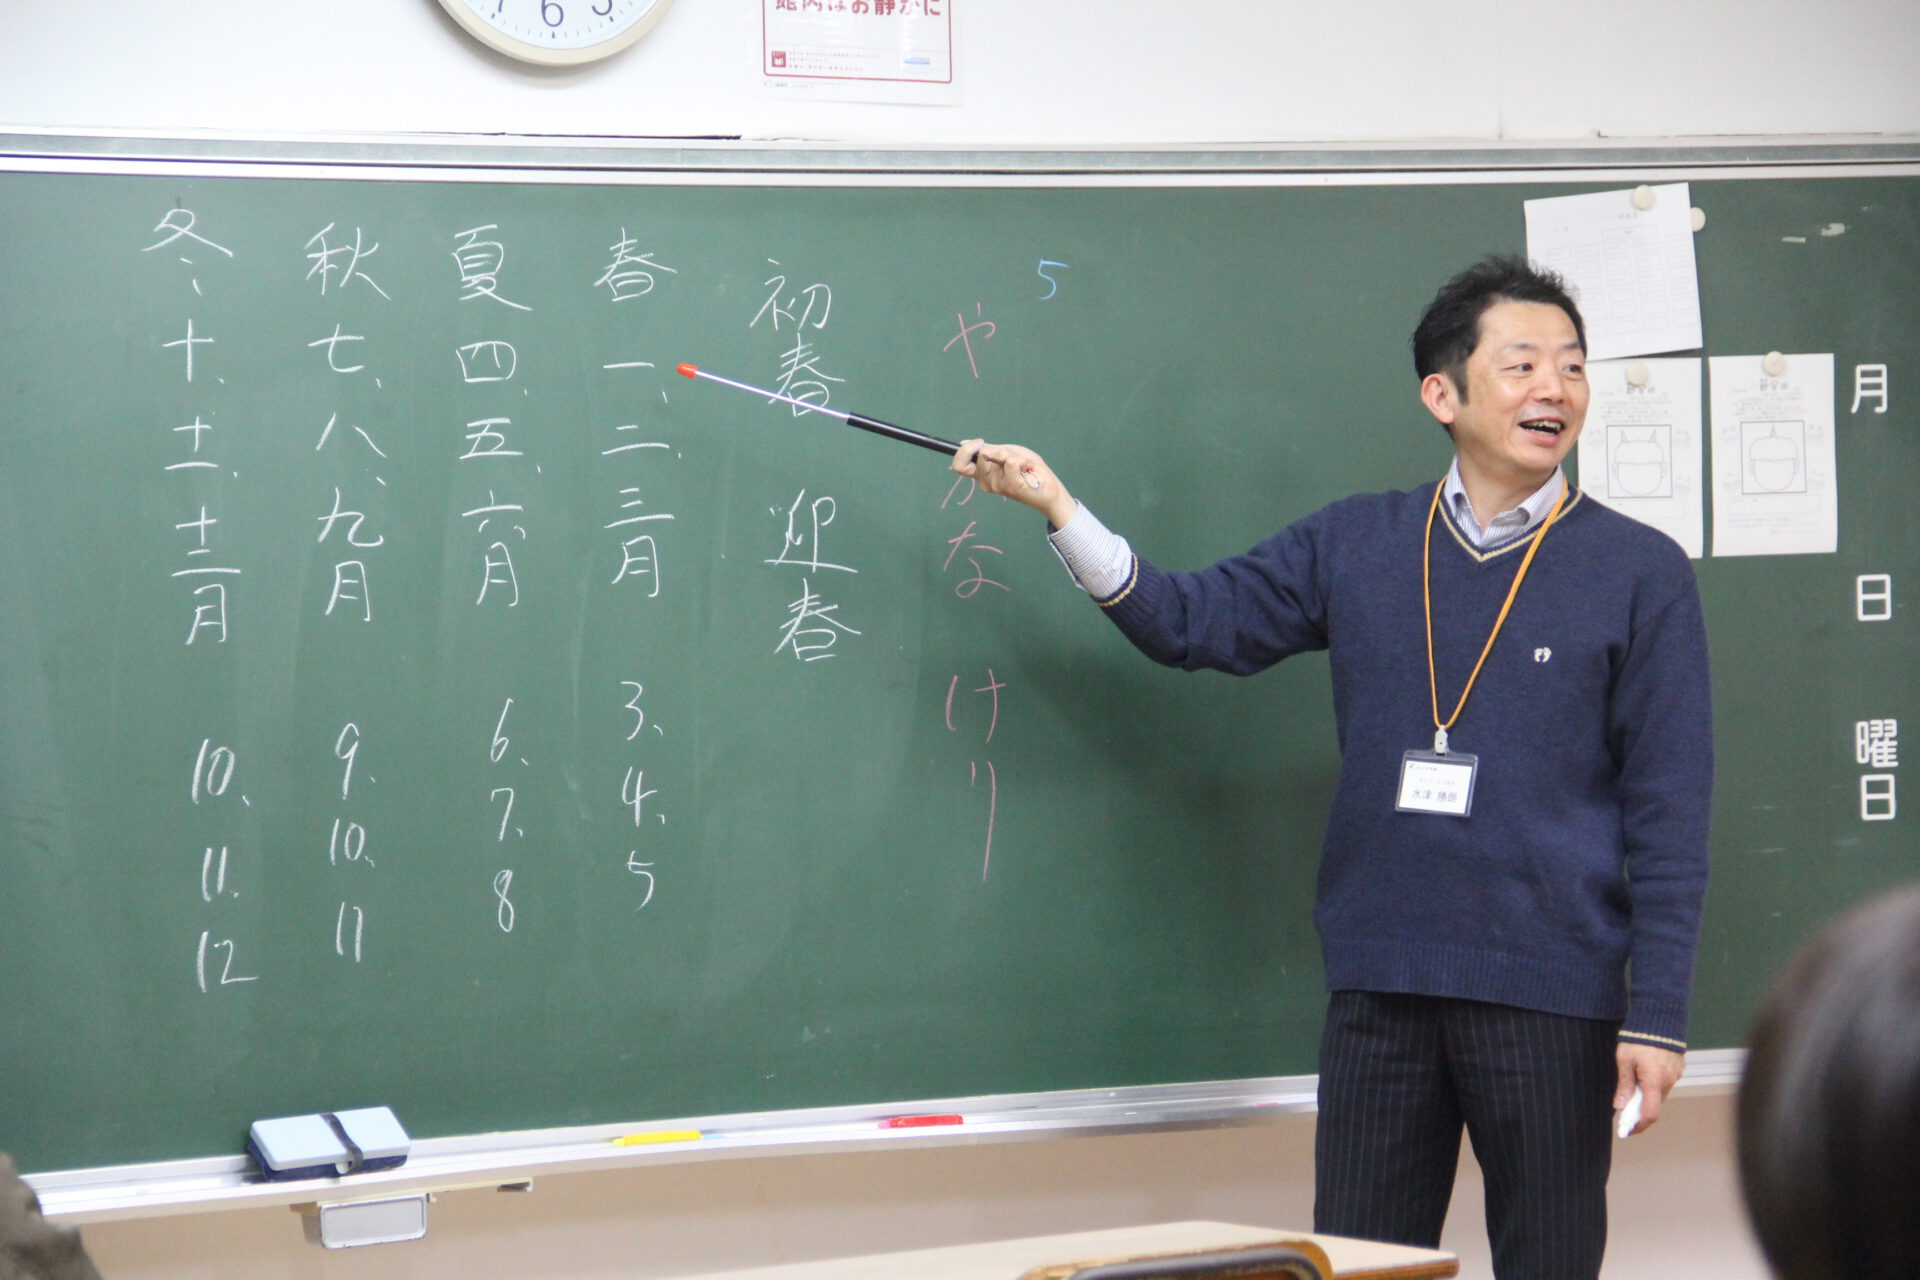 館内はお静かに
7 6 5
5
や
かな
けり
初春 迎春
春 一、二、三月 3、4、5
夏 四、五、六月 6、7、8
秋 七、八、九月 9、10、11
冬、十、十一、十二月 10、11、12
月
日
曜日
節分
水津 勝朗